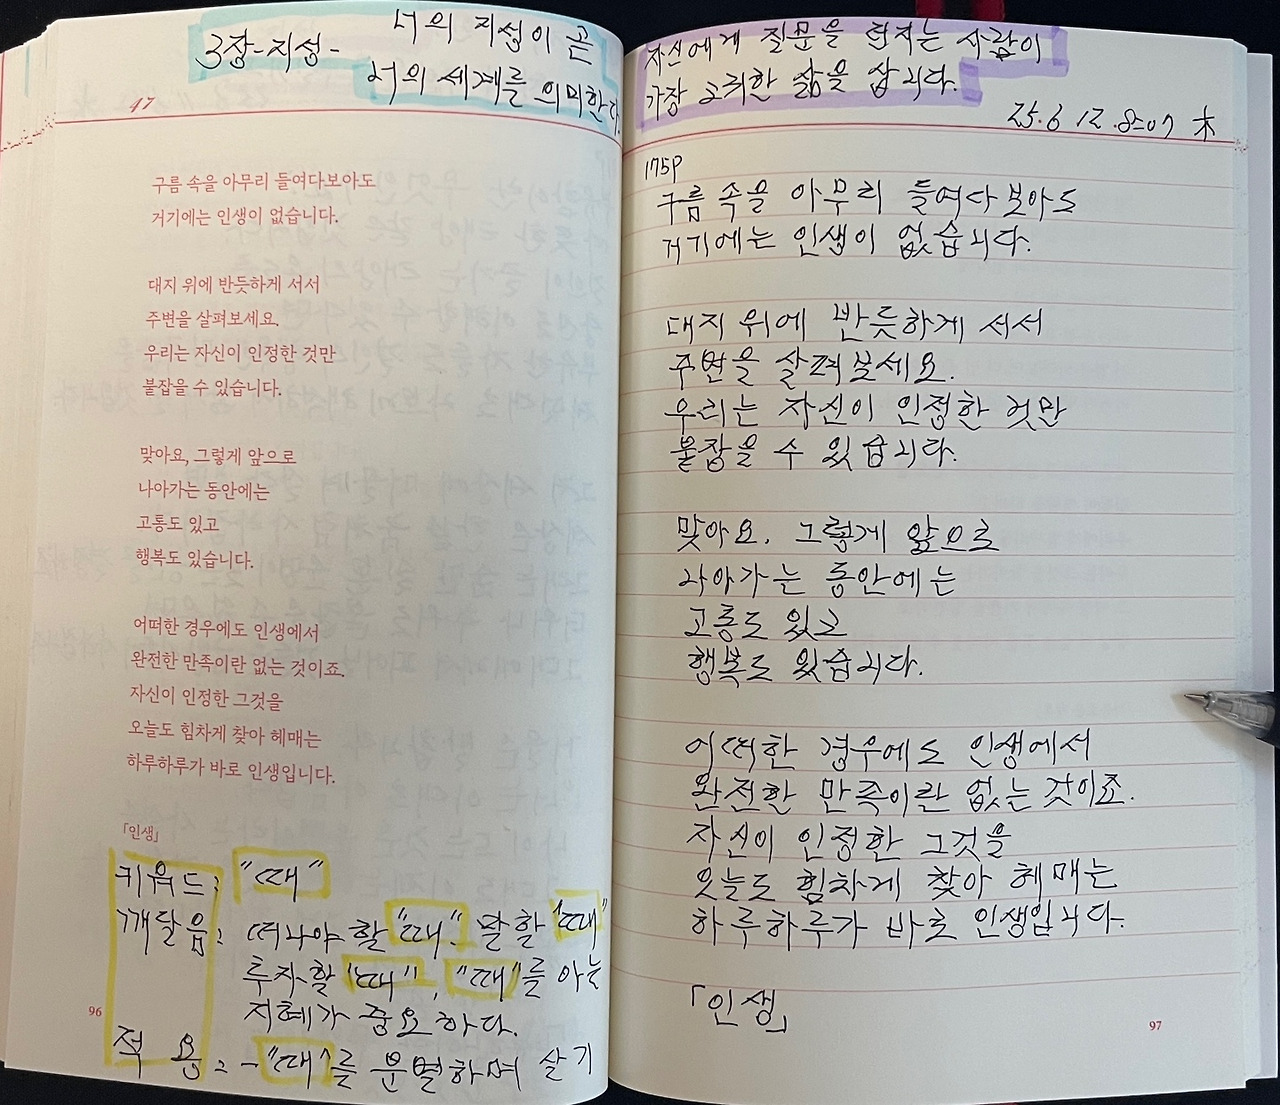 3장-지성-
너의 지성이 곧
너의 세계를 의미한다.
47
구름 속을 아무리 들여다보아도
거기에는 인생이 없습니다.
대지 위에 반듯하게 서서
주변을 살펴보세요.
우리는 자신이 인정한 것만
붙잡을 수 있습니다.
맞아요, 그렇게 앞으로
나아가는 동안에는
고통도 있고
행복도 있습니다.
어떠한 경우에도 인생에서
완전한 만족이란 없는 것이죠.
자신이 인정한 그것을
오늘도 힘차게 찾아 헤매는
하루하루가 바로 인생입니다.
「인생」
키워드: "때"
깨달음: 떠나야 할 "때". 말할 "때"
투자할 "때", "때"를 아는
지혜가 중요하다.
적 용: - "때"를 분별하며 살기
96
자신에게 질문을 던지는 사람이
가장 소중한 삶을 삽니다.
25.6 12. 8:07 木
175P
구름 속을 아무리 들여다보아도
거기에는 인생이 없습니다.
대지 위에 반듯하게 서서
주변을 살펴보세요.
우리는 자신이 인정한 것만
붙잡을 수 있습니다.
맞아요. 그렇게 앞으로
나아가는 동안에는
고통도 있고
행복도 있습니다.
어떠한 경우에도 인생에서
완전한 만족이란 없는 것이죠.
자신이 인정한 그것을
오늘도 힘차게 찾아 헤매는
하루하루가 바로 인생입니다.
「인생」
97